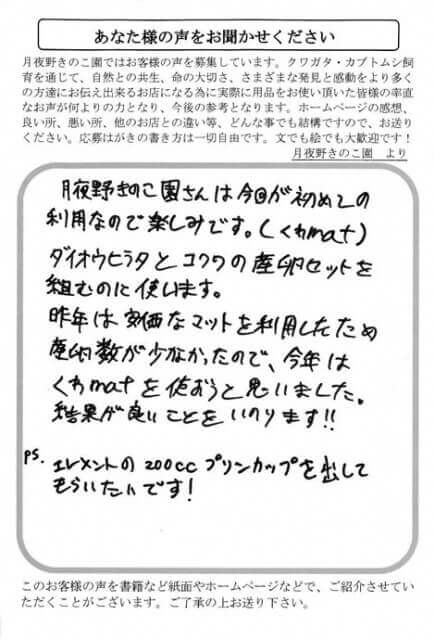 あなた様の声をお聞かせください
月夜野きのこ園ではお客様の声を募集しています。クワガタ・カブトムシ飼
育を通じて、自然との共生、命の大切さ、さまざまな発見と感動をより多く
の方達にお伝え出来るお店になる為に実際に用品をお使い頂いた皆様の率直
なお声が何よりの力となり、今後の参考となります。ホームページの感想、
良い所、悪い所、他のお店との違い等、どんな事でも結構ですので、お送り
ください。応募はがきの書き方は一切自由です。文でも絵でも大歓迎です！
月夜野きのこ園 より
月夜野きのこ園さんは今回が初めての
利用なので楽しみです。(くわmat)
ダイオウヒラタとコクワの産卵セットを
組むのに使います。
昨年は安価なマットを利用したため
産卵数が少なかったので、今年は
くわmatを使おうと思いました。
結果が良いことをいのります!!
PS. エレメントの200ccプリンカップを出して
もらいたいです!
このお客様の声を書籍など紙面やホームページなどで、ご紹介させてい
ただくことがございます。ご了承の上お送り下さい。